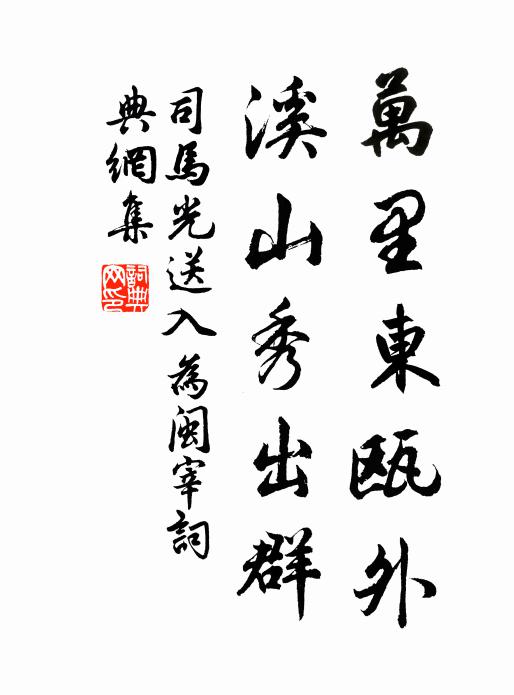 萬里東甌外
溪山秀出群
司馬光送入為閩宰詞
典網集
詞典網印